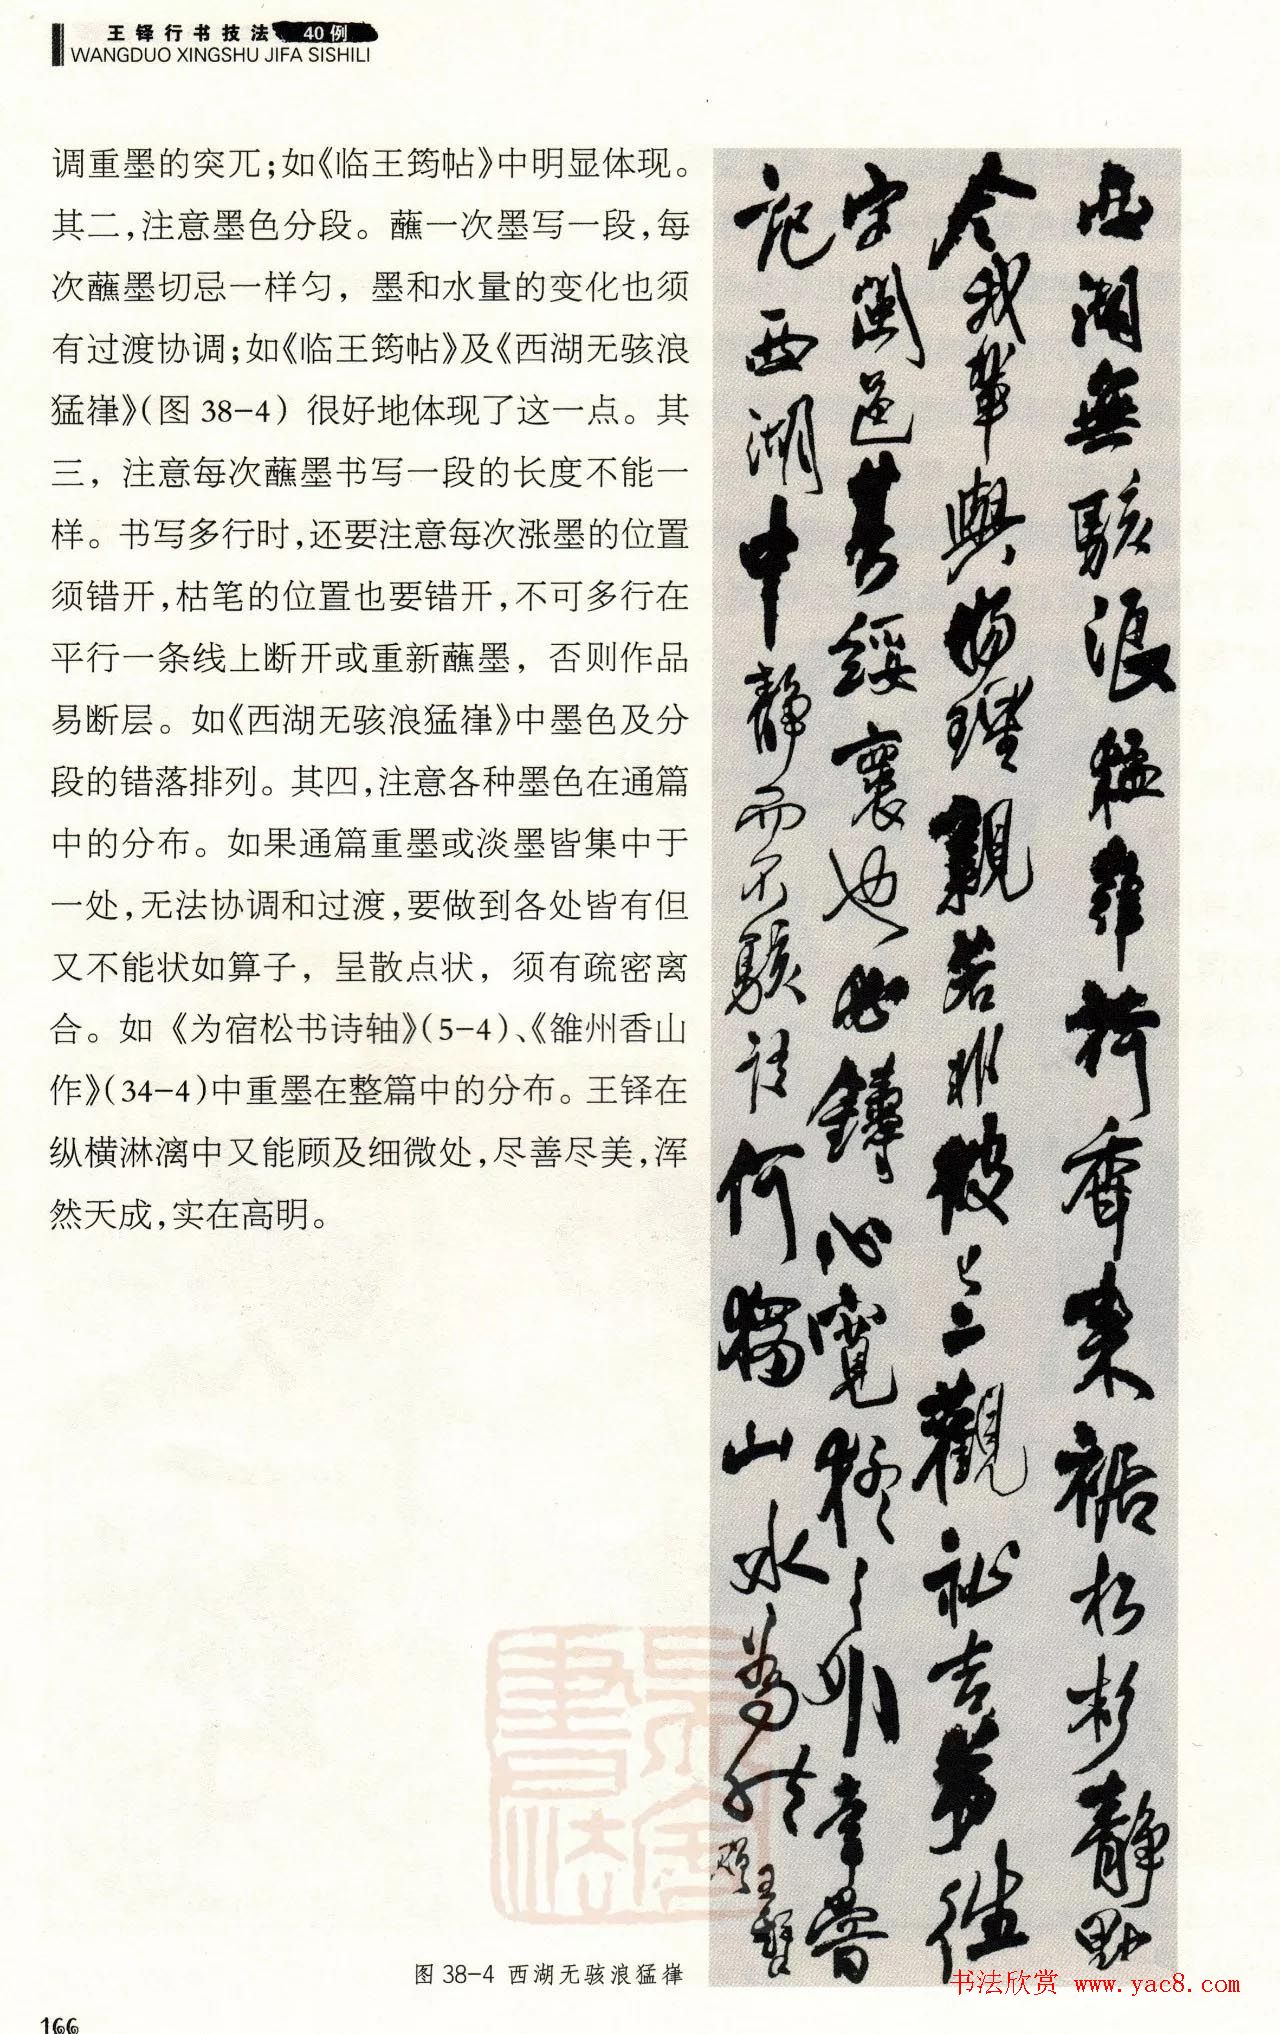 王铎行书技法 40例
WANGDUO XINGSHU JIFA SISHILI
调重墨的突兀;如《临王筠帖》中明显体现。
其二,注意墨色分段。蘸一次墨写一段,每
次蘸墨切忌一样匀，墨和水量的变化也须
有过渡协调;如《临王筠帖》及《西湖无骇浪
猛嵂》(图 38-4) 很好地体现了这一点。其
三，注意每次蘸墨书写一段的长度不能一
样。书写多行时,还要注意每次涨墨的位置
须错开,枯笔的位置也要错开,不可多行在
平行一条线上断开或重新蘸墨，否则作品
易断层。如《西湖无骇浪猛嵂》中墨色及分
段的错落排列。其四,注意各种墨色在通篇
中的分布。如果通篇重墨或淡墨皆集中于
一处,无法协调和过渡,要做到各处皆有但
又不能状如算子，呈散点状，须有疏密离
合。如《为宿松书诗轴》(5-4)、《雒州香山
作》(34-4)中重墨在整篇中的分布。王铎在
纵横淋漓中又能顾及细微处,尽善尽美,浑
然天成,实在高明。
西湖無駭浪猛嵂荷香来裾松杉静點
今我輩與物理親若非彼已二觀祉吉萬徃
字閩邑綏襄也鑄心寬於
記西湖中静而不駭語何獨山水為然
王鐸
图 38-4 西湖无骇浪猛嵂
166
书法欣赏 www.yac8.com